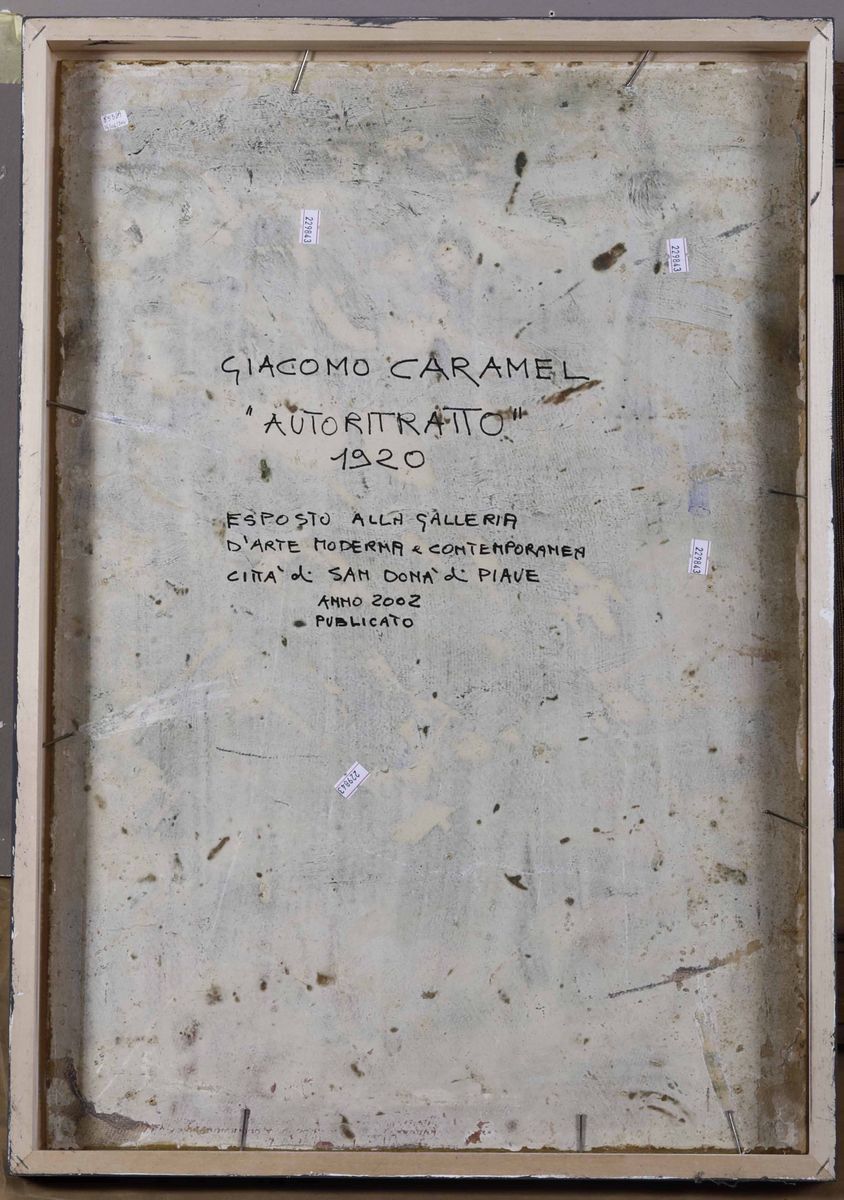 229843
229843
GIACOMO CARAMEL
"AUTORITRATTO"
1920
ESPOSTO ALLA GALLERIA
D'ARTE MODERNA e CONTEMPORANEA
CITTA' di SAN DONA' di PIAVE
ANNO 2002
PUBLICATO
229843
229843